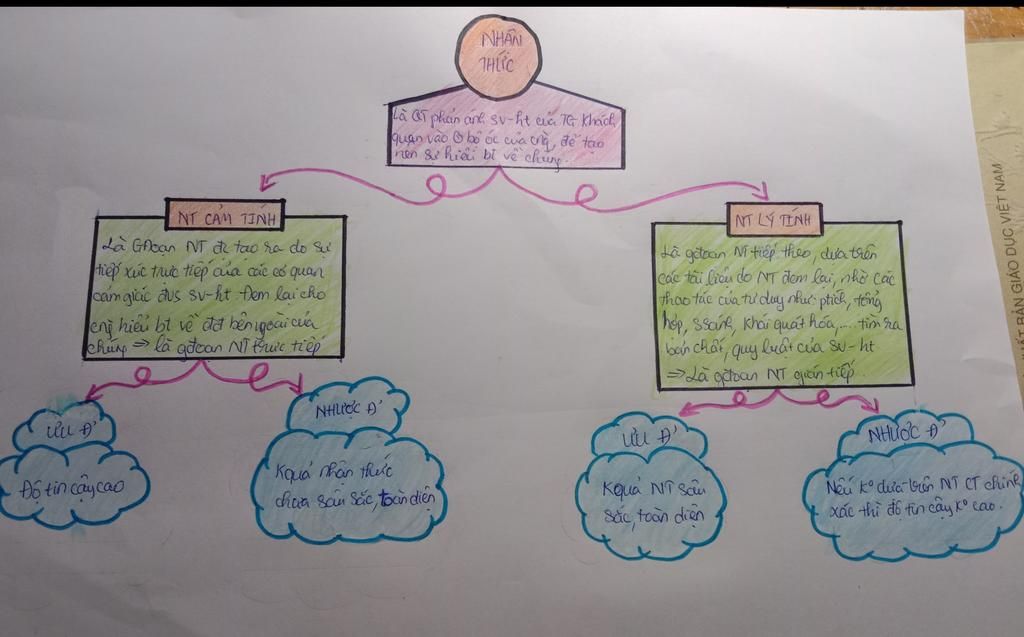 NHẬN
THỨC
Là QT phản ánh sv-ht của TG khách
quan vào bộ óc của cng, để tạo
nên sự hiểu bt về chúng.
NT CẢM TÍNH
Là GĐoạn NT đc tạo ra do sự
tiếp xúc trực tiếp của các cơ quan
cảm giác đvs sv-ht. Đem lại cho
cng hiểu bt về đđ bên ngoài của
chúng => là gđoạn NT trực tiếp
NT LÝ TÍNH
Là gđoạn NT tiếp theo, dựa trên
các tài liệu do NT đem lại, nhờ các
thao tác của tư duy như: ptích, tổng
hợp, ssánh, khái quát hóa,... tìm ra
bản chất, quy luật của sv-ht
=> Là gđoạn NT gián tiếp.
ƯU Đ'
Độ tin cậy cao
NHƯỢC Đ'
Kquả nhận thức
chưa sâu sắc, toàn diện
ƯU Đ'
Kquả NT sâu
sắc, toàn diện
NHƯỢC Đ'
Nếu k° dựa trên NT CT chính
xác thì độ tin cậy k° cao.
BẢN GIÁO DỤC VIỆT NAM